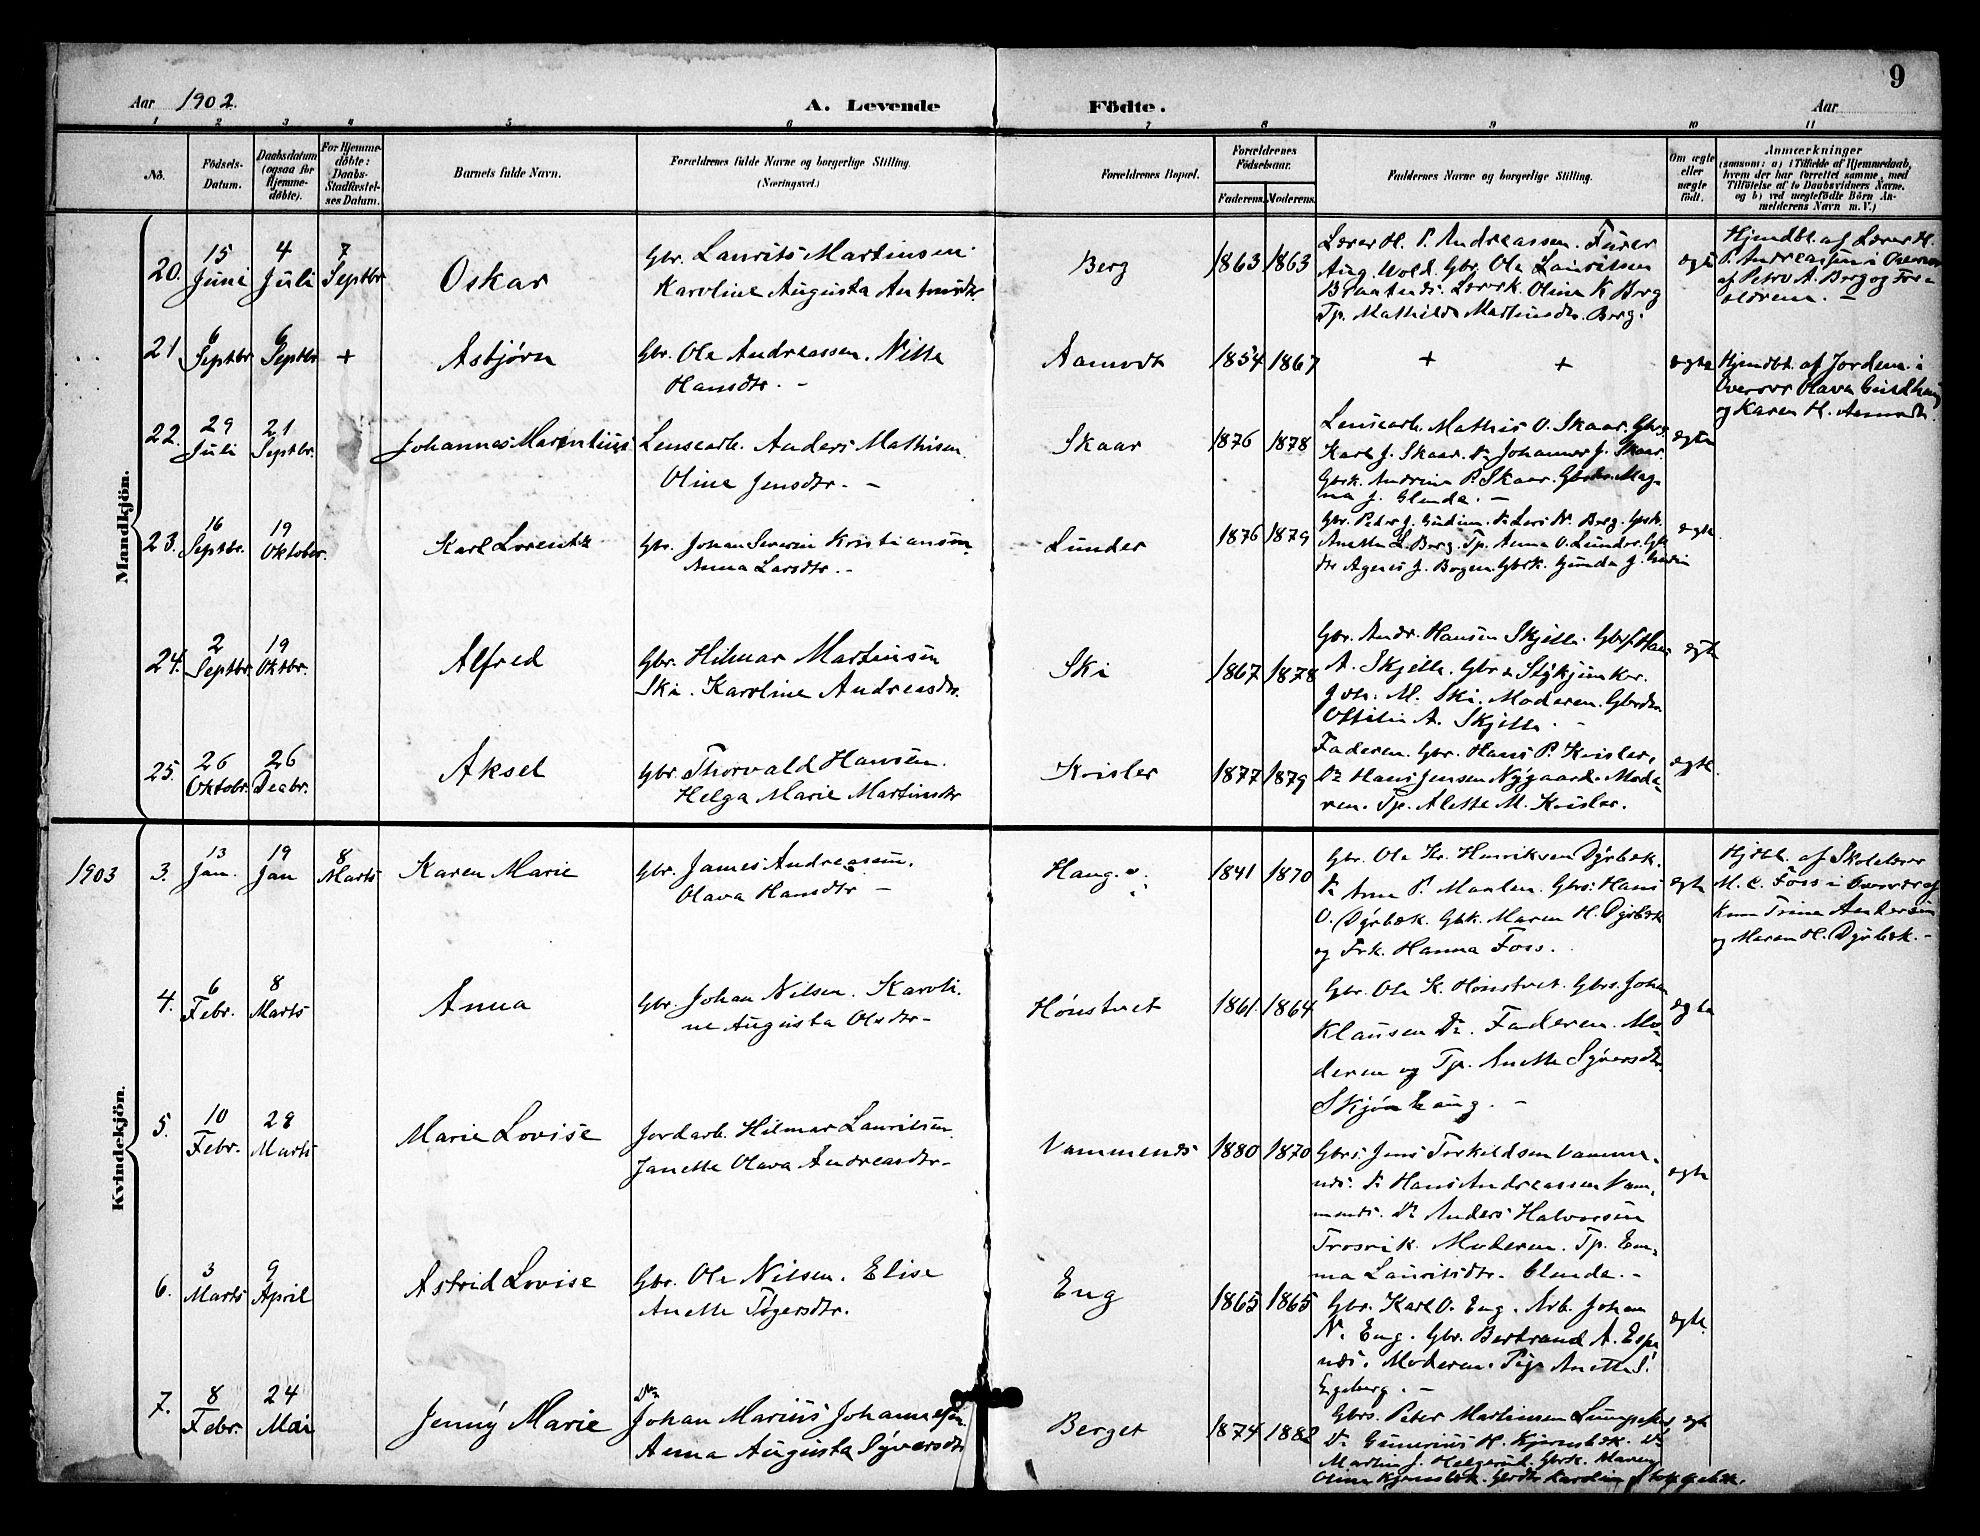 9
Aar 1902.
A. Levende
Födte.
Aar
1 2 3 4 5 6 7 8 9 10 11
No.
Födsels-
Datum.
Daabsdatum
(ogsaa for
Hjemme-
döbte).
For Hjemme-
döbte:
Daabs-
Stadfæstel-
ses Datum.
Barnets fulde Navn.
Forældrenes fulde Navne og borgerlige Stilling.
(Næringsvei.)
Forældrenes Bopæl.
Forældrenes
Födselsaar.
Faderens. Moderens.
Faddernes Navne og borgerlige Stilling.
Om ægte
eller
uægte
födt.
Anmærkninger
(saasom: a) i Tilfælde af Hjemmedaab,
hvem der har forrettet samme, med
Tilföielse af to Daabsvidners Navne.
og b) ved uægtefödte Börn An-
melderens Navn m. V.)
Mandkjön.
20.
15
Juni
4
Juli
7
Septbr
Oskar
Gbr. Laurits Martinsen
Karoline Augusta
Berg
1863 1863
Lærer H. P. Andreassen. Fürer
Aug. Wold. Gbr. Ole Lauritsen
Lærerk. Oline K Berg
Tp. Mathilde Martinsdtr. Berg.
ægte
Hjmdbt. af Lærer H.
P. Andreassen i Overvær
af Petro A. Berg og For-
ældrene. –
21
6
Septbr.
6
Septbr
+
Asbjørn
Gbr. Ole Andreassen. Nille
Hansdtr. –
Aamodt
1854 1867
+ +
ægte
Hjmdbt. af Jordem. i
Overvær Olava
og Karen H. Aamodt
22.
29
Juli
21
Septbr.
Johannes Marentius
Lensearb. Anders Mathisen.
Oline Jensdtr. –
Skaar
1876 1878
Lensearb. Mathis O. Skaar. Gbrs.
Karl J. Skaar. Do Johannes J. Skaar.
Gbrk. Andrine P. Skaar. Gbrdtr. Mag-
na J. Elende. –
ægte
23.
16
Septbr.
19
Oktober.
Karl Lorentz
Gbr. Johan Severin Kristiansen
Anna Larsdtr. –
Lunder
1876 1879
Gbr. Peter J. Gudim. Do Lars N. Berg. Gbrk.
Anette L. Berg. Tp. Anna O. Lunder. Gbr
dtr Agnes J. Bogen. Gbrk. Gunda J.
ægte.
24.
2
Septbr.
19
Oktbr.
Alfred
Gbr. Hilmar Martinsen
Ski. Karoline Andreasdtr.
Ski
1867 1878
Gbr. Andr. Hansen Skjelle. Gbrs Hans
A. Skjelle. Gbr & Stykjunker.
Joh. M. Ski. Moderen. Gbrdtr.
Ottilie A. Skjelle. –
ægte
25.
26
Oktobr.
26
Decbr.
Aksel
Gbr. Thorvald Hansen.
Helga Marie Martinsdtr
Kvisler
1877 1879
Faderen. Gbr. Hans P. Kvisler.
Do Hans Jensen Nygaard. Mode-
ren. Tp. Alette M. Kvisler.
ægte.
Kvindekjön.
1903
3.
13
Jan.
19
Jan
8
Marts
Karen Marie
Gbr. James Andreasen.
Olava Hansdtr –
Haug. v.
1841 1870
Gbr. Ole Kr. Henriksen Dyrbæk.
Do Arne P. Marlen. Gbrs: Hans
O. Dyrbæk. Gbk. Maren H. Dyrbæk
og Frk. Hanna Foss.
ægte
Hjdbt. af Skolelærer
M. C. Foss i Overvær af
Kone Trine Andersen
og Maren H. Dyrbæk. –
4.
6
Febr.
8
Marts
Anna
Gbr. Johan Nilsen. Karoli-
ne Augusta Olsdtr –
Hønstvet
1861. 1864
Gbr. Ole K. Hønstvet. Gbrs. Johan
Klausen Do. Faderen. Mo-
deren og Tp. Anette Syversdtr.
Skjønhaug. –
ægte
5.
10
Febr.
29
Marts
Marie Lovise
Jordarb. Hilmar Lauritsen.
Janette Olava Andreasdtr –
Vammenæs
1880 1870
Gbrs. Jens Torkildsen Vamme-
næs. Do Hans Andreassen Vam-
menæs. Do Anders Halvorsen
Trosvik. Moderen. Tp. Em-
ma Lauritsdtr. Elende. –
ægte
6.
3
Marts
9
April
Astrid Lovise
Gbr. Ole Nilsen. Elise
Anette Tøgersdtr.
Eng
1865 1865
Gbr. Karl O. Eng. Arb. Johan
N. Eng. Gbr. Bertrand A. Espe-
næs. Moderen. Pige Anette S.
Egeberg. –
ægte.
7.
8
Febr.
24
Mai
Jenny Marie
Do
Johan Marius Johannesen.
Anna Augusta Syversdtr
Berget
1874 1882
Gbrs. Peter Martinsen
Do Gunerius H. Kjernsbæk. Do
Martin J. Helgerud. Gbrk. Maren
Oline Kjernsbæk. Gbrdtr Karoline
ægte